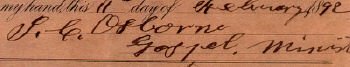 my hand, this 11 day of February, 1892
J. C. Osborne
Gospel. Minist